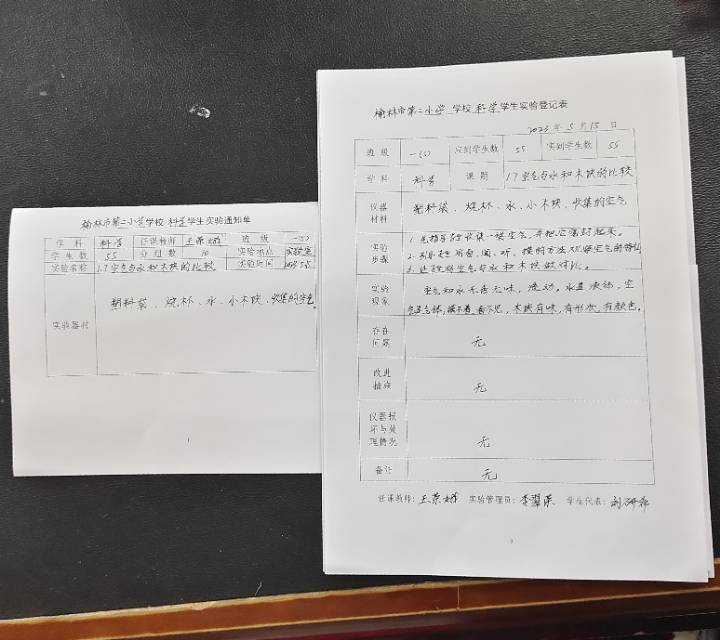 榆林市第二小学学校 科学学生实验通知单
学 科 科学 任课教师 班 级 一(5)
学生数 55 分组数 10 实验地点 实验室
实验名称 1.7空气与水和木块的比较 实验时间
实验器材 塑料袋、烧杯、水、小木块、收集的空气。
1
榆林市第二小学 学校 科学学生实验登记表
2023 年 5 月 15 日
班 级 一(5) 应到学生数 55 实到学生数 55
学 科 科学 课 题 1.7空气与水和木块的比较
仪器材料 塑料袋、烧杯、水、小木块、收集的空气
实验步骤 1.先指导学生收集一袋空气,并把它密封起来。
2.引导学生用看、闻、听、摸的方法观察空气的特征
3.让学生将空气与水和木块做对比。
实验现象 空气和水无色无味,流动,水是液体,空
气是气体,摸不着,看不见,木块有味,有形状,有颜色。
存在问题 无
改进措施 无
仪器损坏与处理情况 无
备注 无
任课教师: 实验管理员: 学生代表: